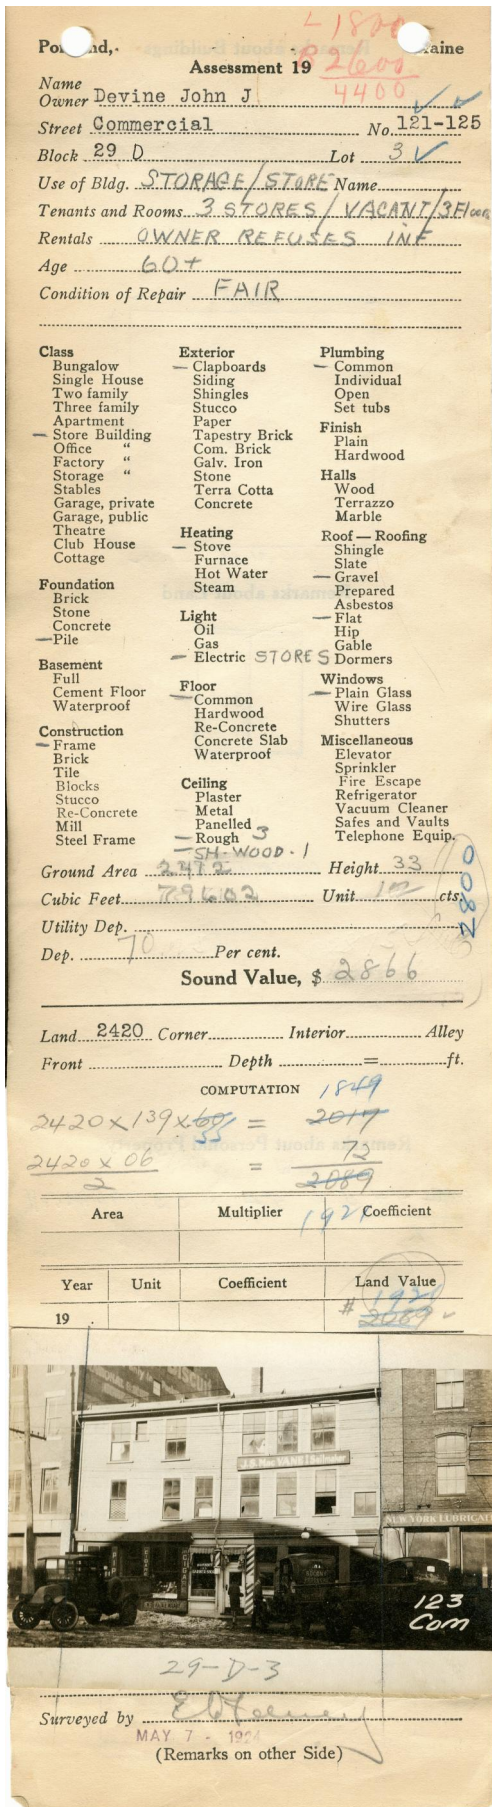 L 1820
Portland, Maine
B 2600
Assessment 19
4400
Name
Owner Devine John J
Street Commercial No. 121-125
Block 29 D Lot 3
Use of Bldg. STORAGE/STORE Name
Tenants and Rooms 3 STORES / VACANT/3Floors
Rentals OWNER REFUSES INF
Age 60+
Condition of Repair FAIR
Class
Bungalow
Single House
Two family
Three family
Apartment
— Store Building
Office "
Factory "
Storage "
Stables
Garage, private
Garage, public
Theatre
Club House
Cottage
Foundation
Brick
Stone
Concrete
— Pile
Basement
Full
Cement Floor
Waterproof
Construction
— Frame
Brick
Tile
Blocks
Stucco
Re-Concrete
Mill
Steel Frame
Exterior
— Clapboards
Siding
Shingles
Stucco
Paper
Tapestry Brick
Com. Brick
Galv. Iron
Stone
Terra Cotta
Concrete
Heating
— Stove
Furnace
Hot Water
Steam
Light
Oil
Gas
— Electric STORES
Floor
— Common
Hardwood
Re-Concrete
Concrete Slab
Waterproof
Ceiling
Plaster
Metal
Panelled
— Rough 3
— SH-WOOD-1
Plumbing
— Common
Individual
Open
Set tubs
Finish
Plain
Hardwood
Halls
Wood
Terrazzo
Marble
Roof — Roofing
Shingle
Slate
— Gravel
Prepared
Asbestos
— Flat
Hip
Gable
Dormers
Windows
— Plain Glass
Wire Glass
Shutters
Miscellaneous
Elevator
Sprinkler
Fire Escape
Refrigerator
Vacuum Cleaner
Safes and Vaults
Telephone Equip.
Ground Area 2412 Height 33
Cubic Feet 79602 Unit cts.
2800
Utility Dep.
Dep. 70 Per cent.
Sound Value, $ 2866
Land 2420 Corner Interior Alley
Front Depth = ft.
COMPUTATION 1849
2420 x 139 x 60 = 2017
55
2420 x 06 = 72
2 2089
Area Multiplier 1921 Coefficient
Year Unit Coefficient Land Value
1920
19 # 2089
J.S. MacVANE
NEW YORK LUBRICAT
123
Com
29-D-3
Surveyed by
MAY 7 - 1924
(Remarks on other Side)